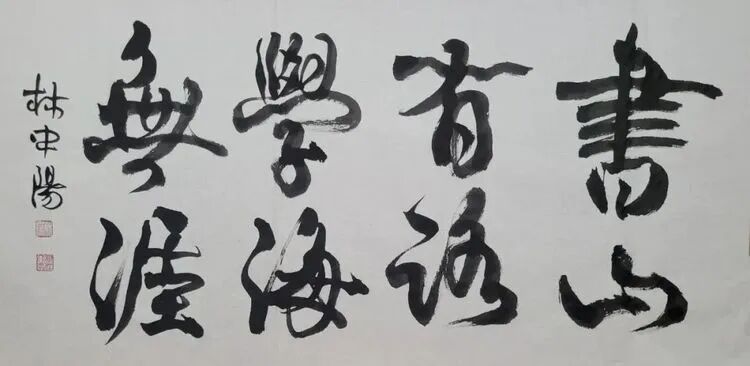 書山
有路
學海
無涯
林中陽